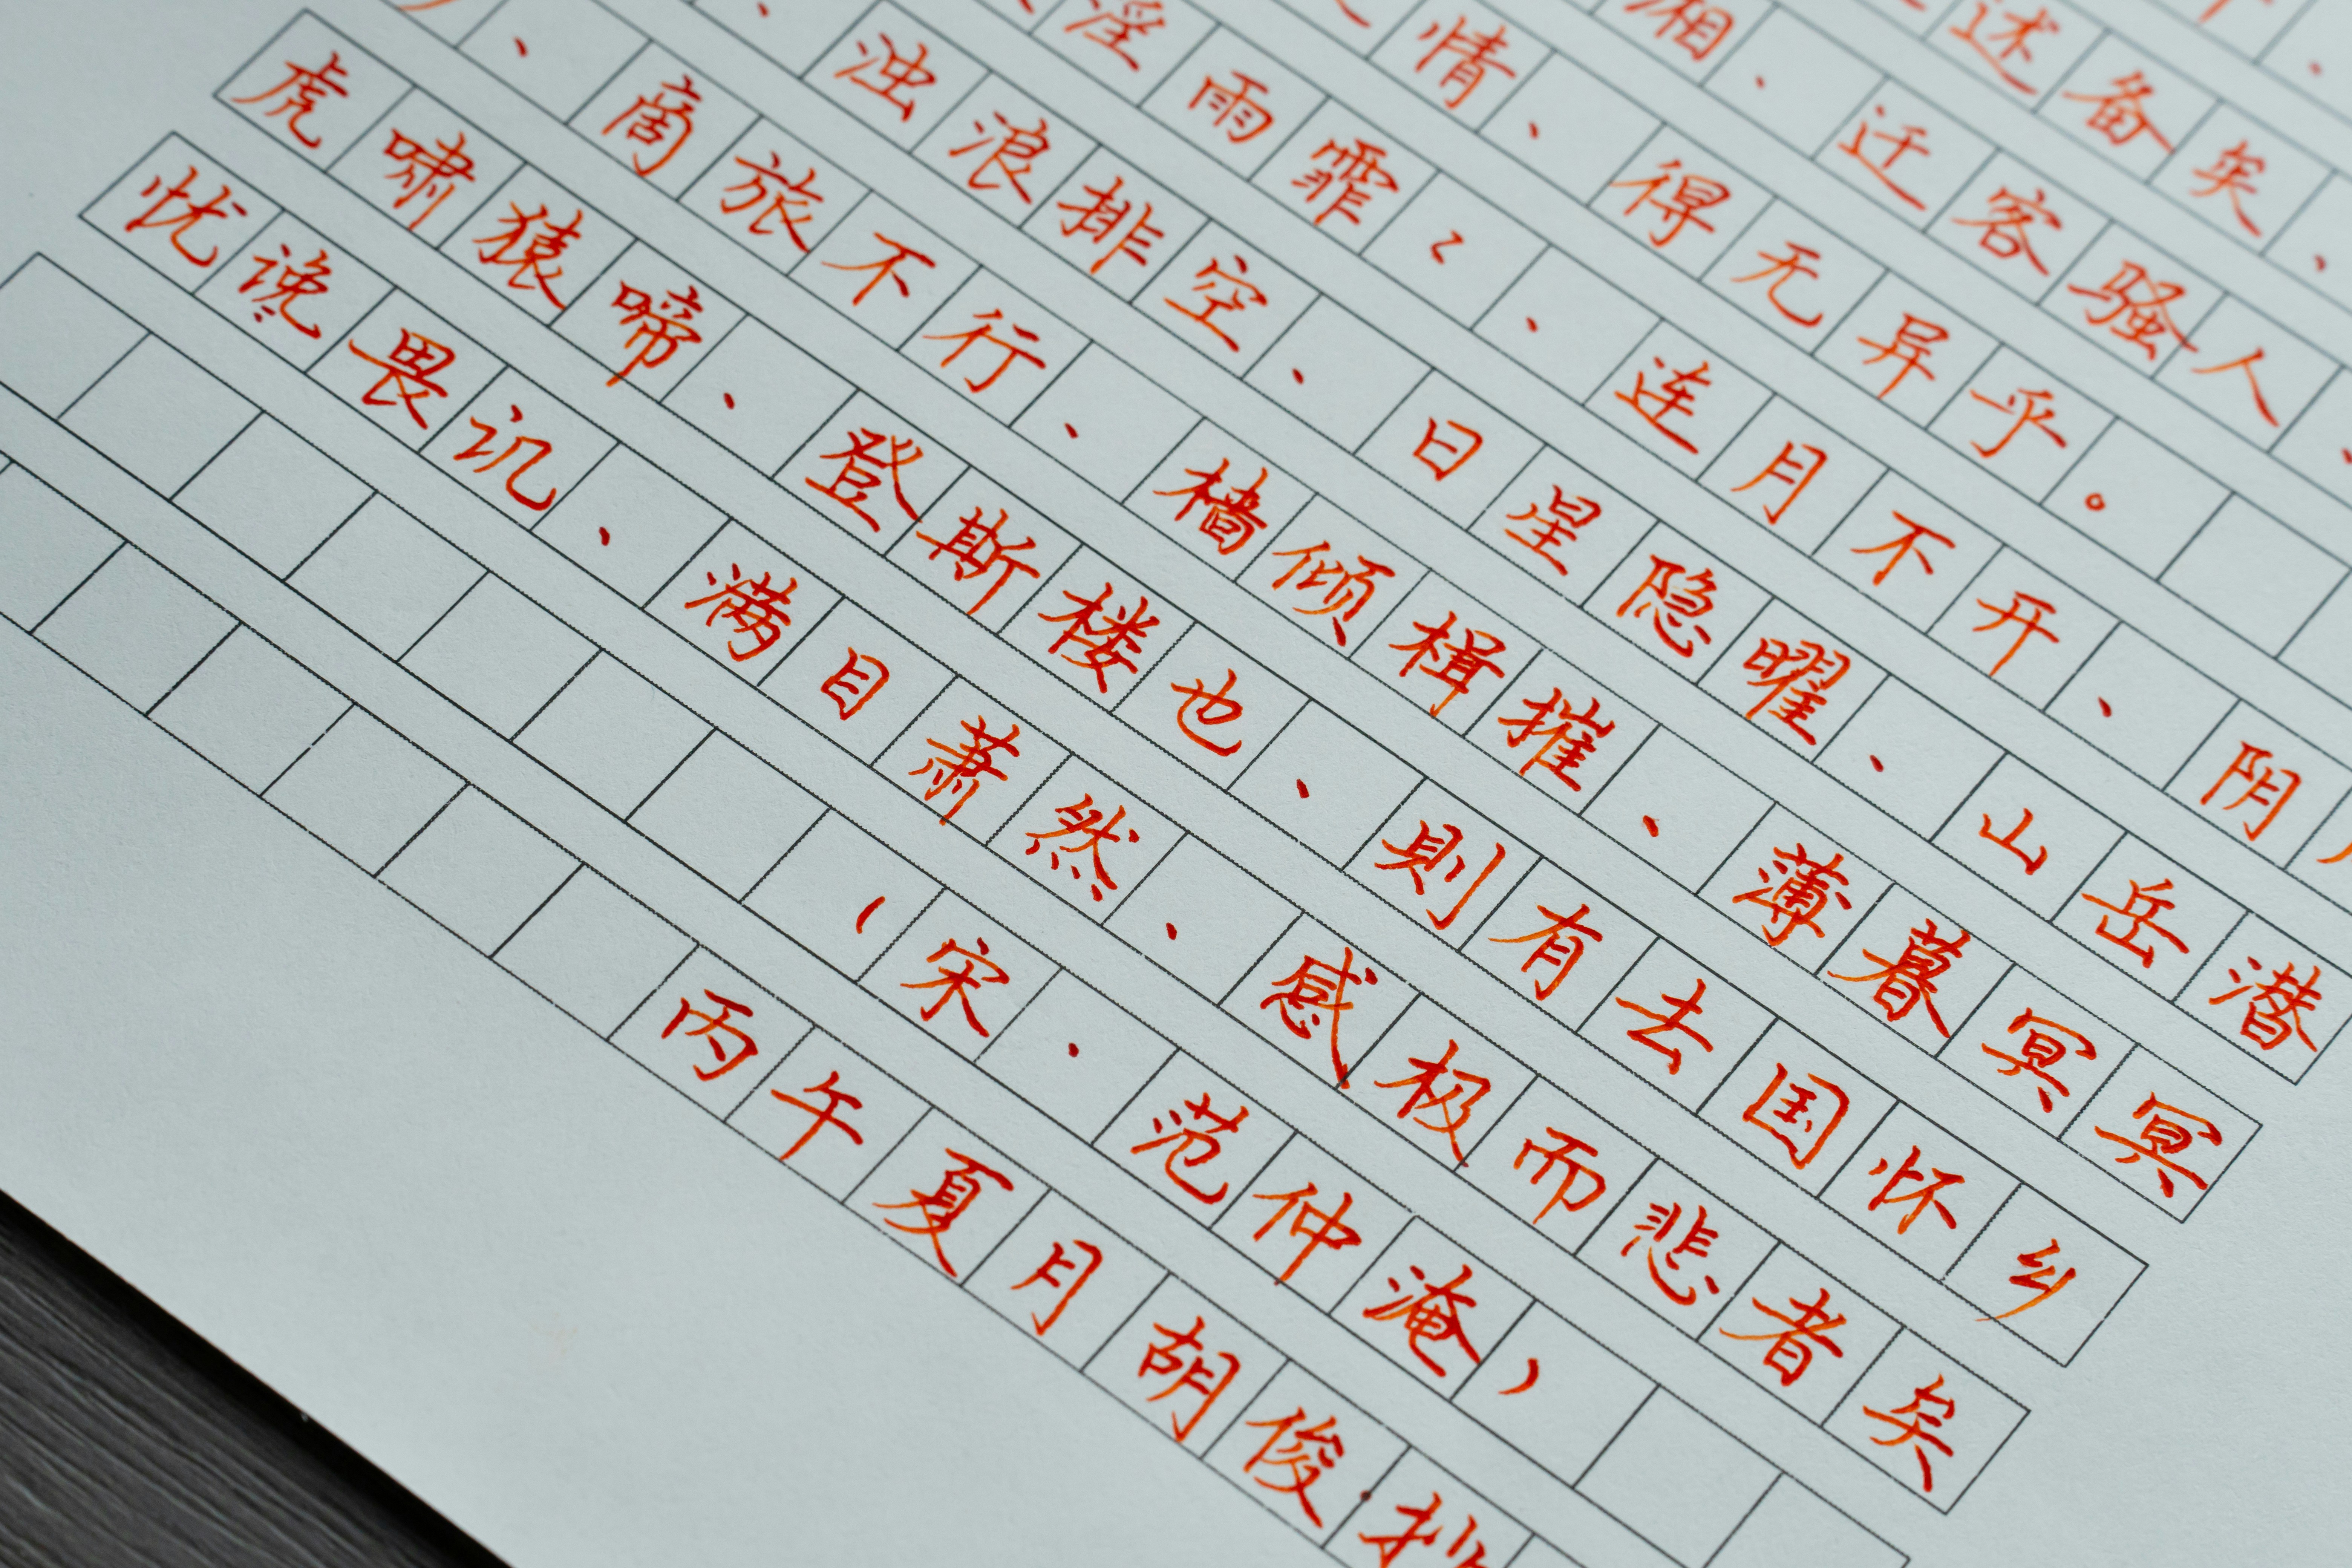 、
述备矣、
湘、迁客骚人、
情、得无异乎。
淫雨霏〻、连月不开、阴
、浊浪排空、日星隐曜、山岳潜
、商旅不行、樯倾楫摧、薄暮冥冥
虎啸猿啼、登斯楼也、则有去国怀乡
忧谗畏讥、满目萧然、感极而悲者矣
（宋·范仲淹）
丙午夏月胡俊抄